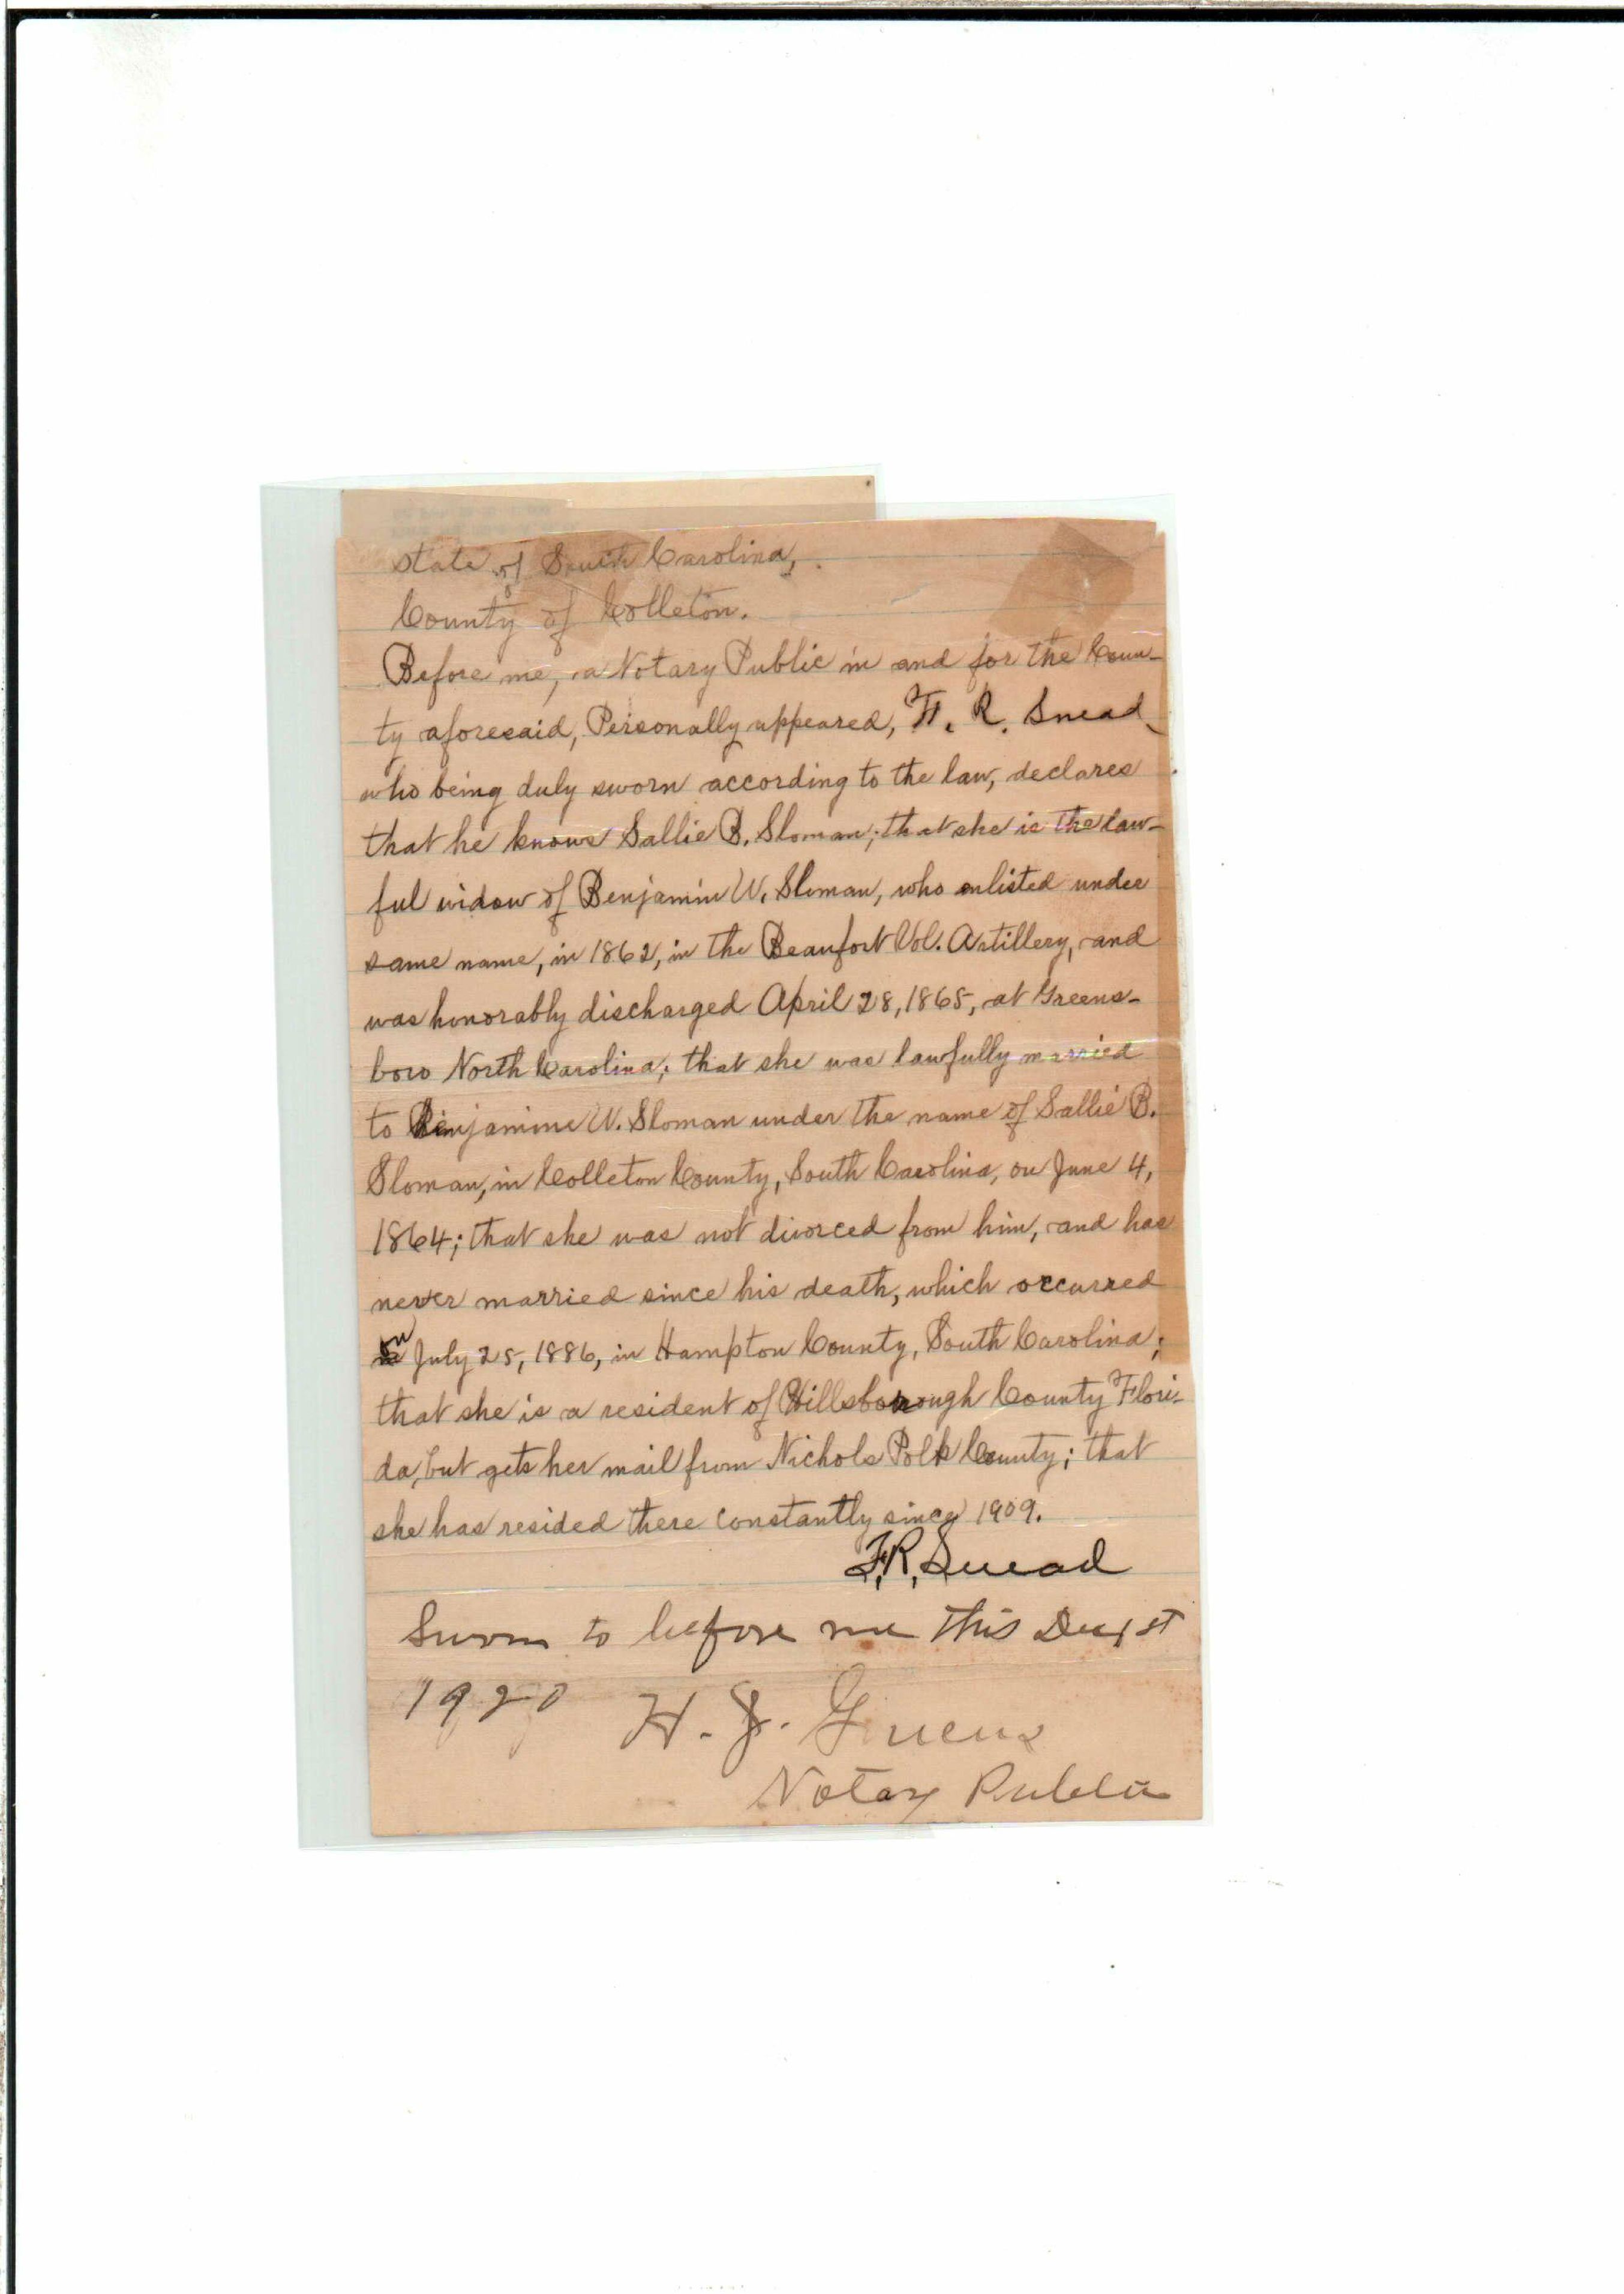 State of South Carolina,
County of Colleton.
Before me, a Notary Public in and for the Coun-
ty aforesaid, Personally appeared, F. R. Snead
who being duly sworn according to the law, declares
that he knows Sallie B. Sloman; that she is the law-
ful widow of Benjamin W. Sloman, who enlisted under
same name, in 1862, in the Beaufort Vol. Artillery, and
was honorably discharged April 28, 1865, at Greens-
boro North Carolina; that she was lawfully married
to Benjamine W. Sloman under the name of Sallie B.
Sloman, in Colleton County, South Carolina, on June 4,
1864; that she was not divorced from him, and has
never married since his death, which occurred
on July 25, 1886, in Hampton County, South Carolina;
that she is a resident of Hillsborough County Flori-
da, but gets her mail from Nichols Polk County; that
she has resided there constantly since 1909.
F. R. Snead
Sworn to before me this Dec 1st
1920 H. J.
Notary Public